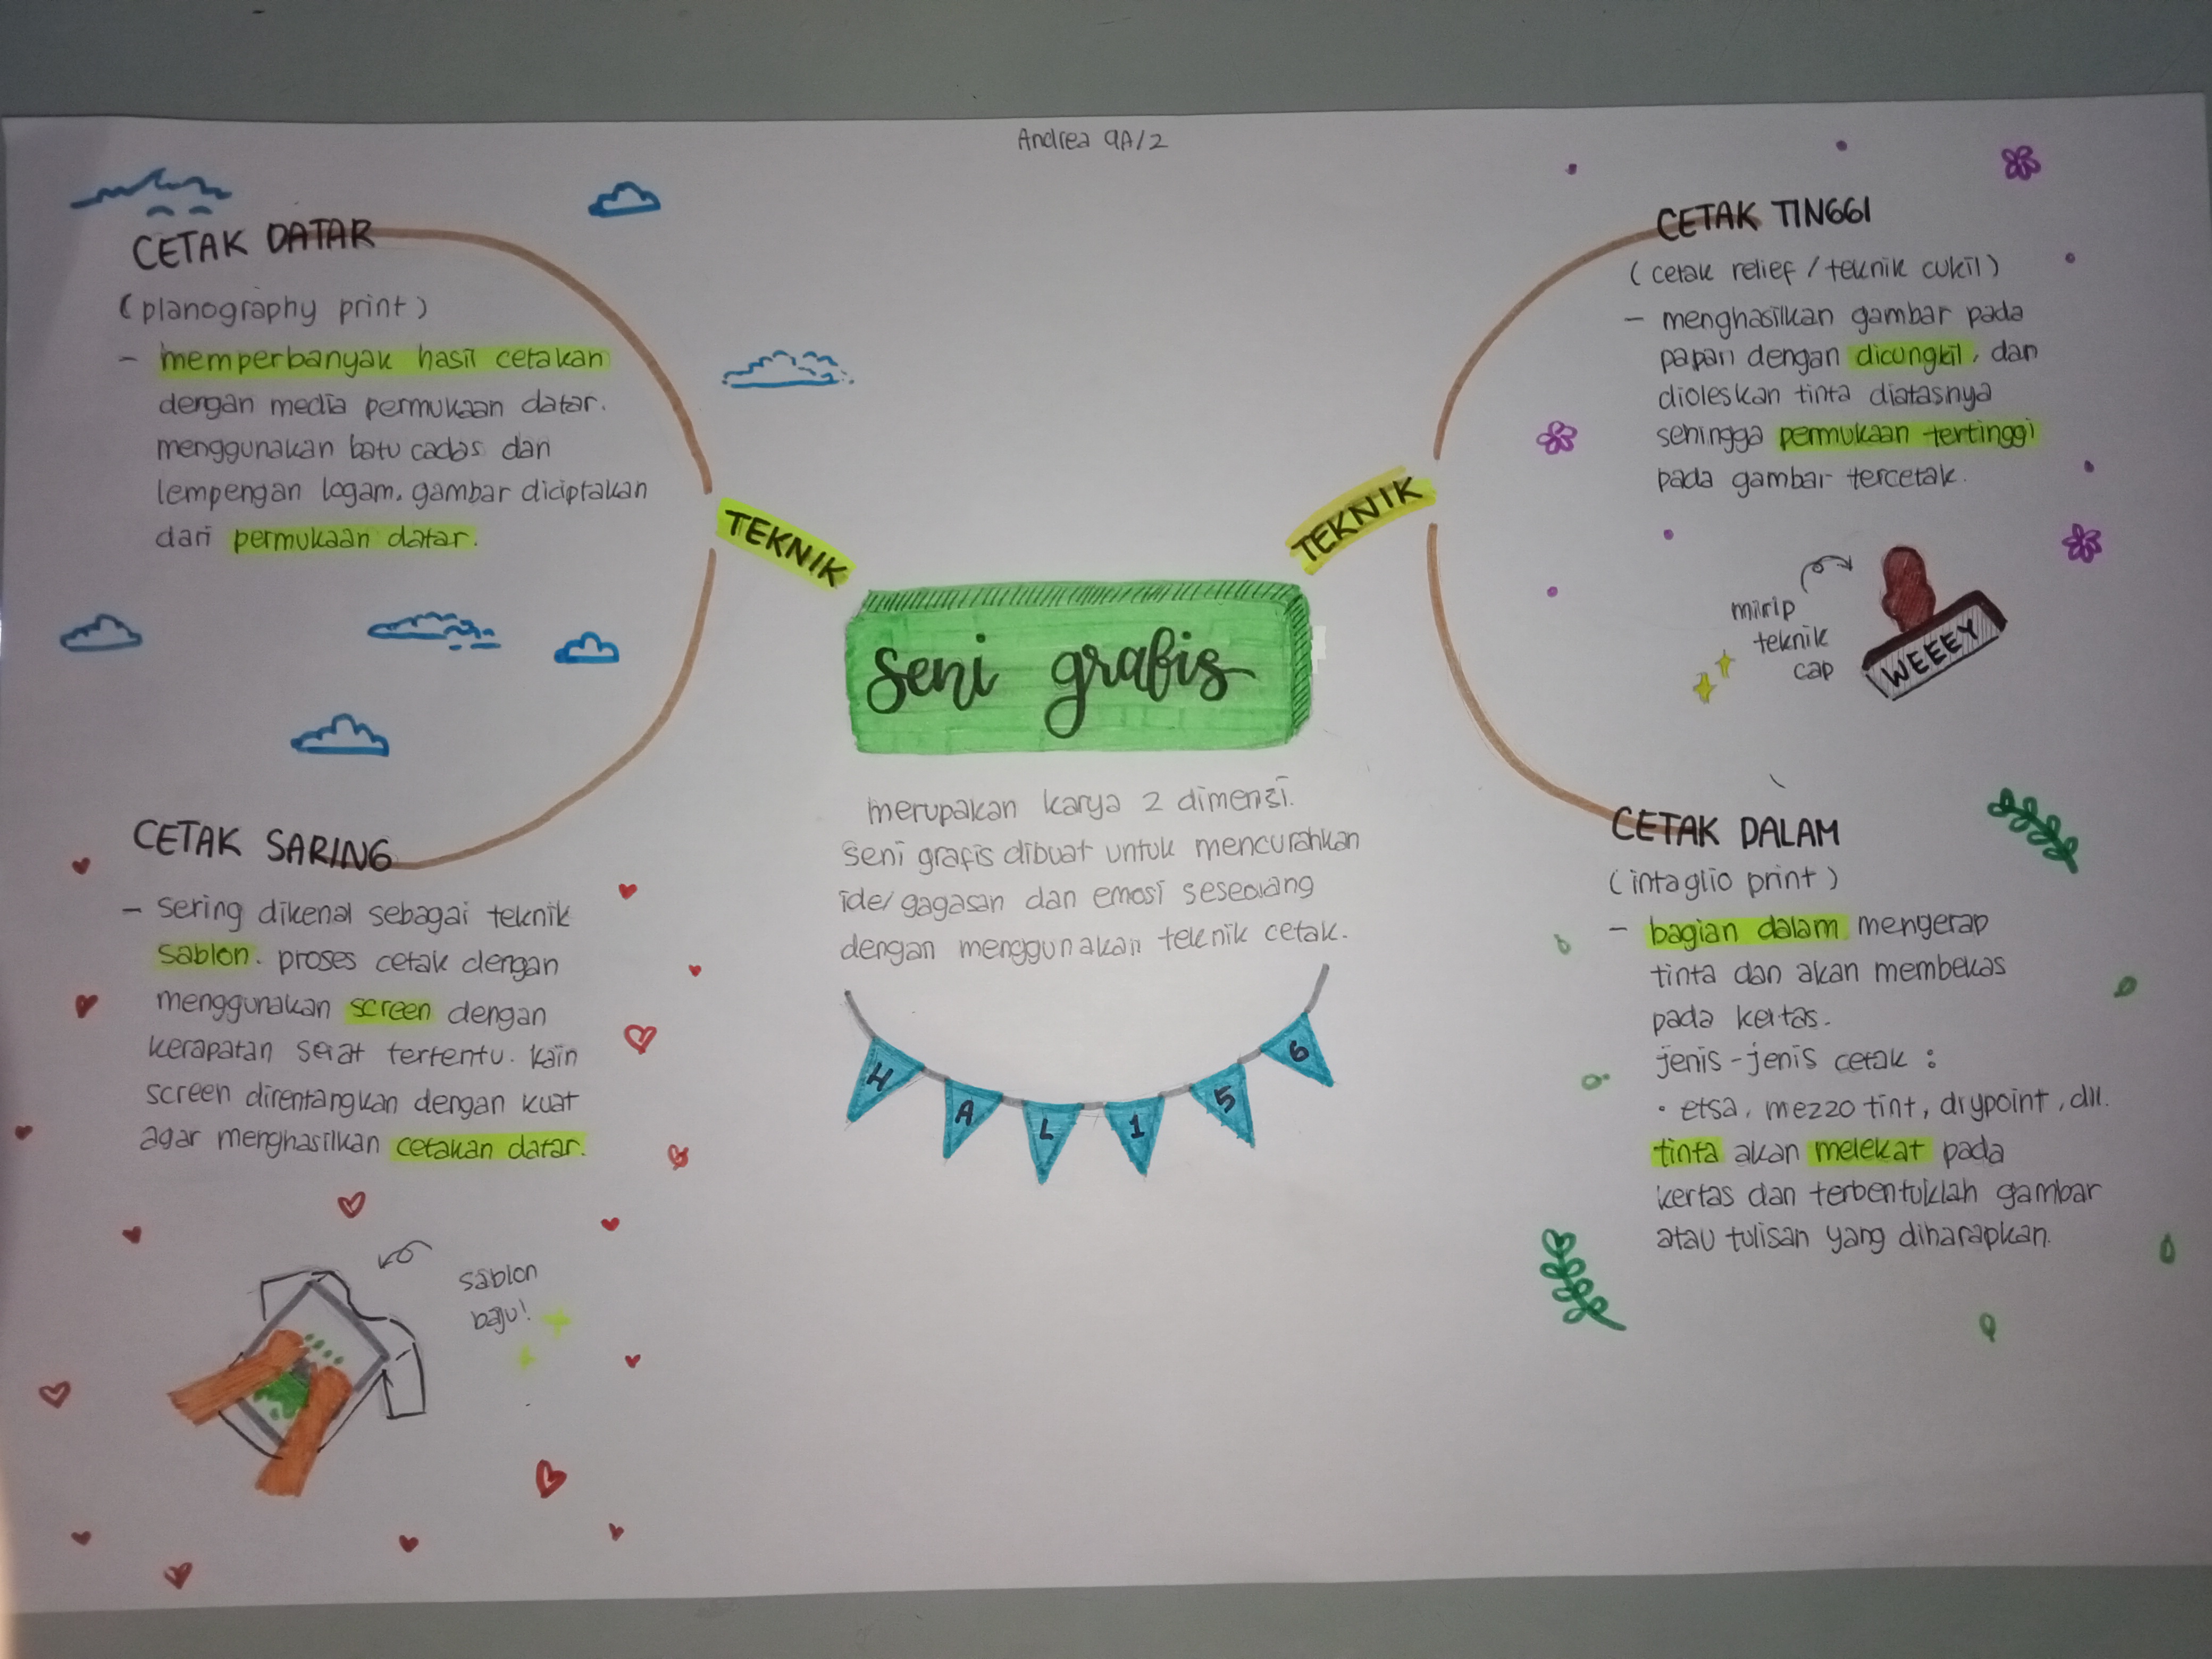 Andrea 9A/2
CETAK DATAR
(planography print)
- memperbanyak hasil cetakan
dengan media permukaan datar.
menggunakan batu cadas dan
lempengan logam. gambar diciptakan
dari permukaan datar.
TEKNIK
CETAK SARING
- sering dikenal sebagai teknik
sablon. proses cetak dengan
menggunakan screen dengan
kerapatan serat tertentu. kain
screen direntangkan dengan kuat
agar menghasilkan cetakan datar.
sablon
baju!
seni grafis
merupakan karya 2 dimensi.
seni grafis dibuat untuk mencurahkan
ide/gagasan dan emosi seseorang
dengan menggunakan teknik cetak.
HAL 156
TEKNIK
CETAK TINGGI
(cetak relief / teknik cukil)
- menghasilkan gambar pada
papan dengan dicungkil, dan
dioleskan tinta diatasnya
sehingga permukaan tertinggi
pada gambar tercetak.
mirip
teknik
cap
WEEEY
CETAK DALAM
(intaglio print)
- bagian dalam mengerap
tinta dan akan membekas
pada kertas.
jenis-jenis cetak :
• etsa, mezzo tint, drypoint, dll.
tinta akan melekat pada
kertas dan terbentuklah gambar
atau tulisan yang diharapkan.